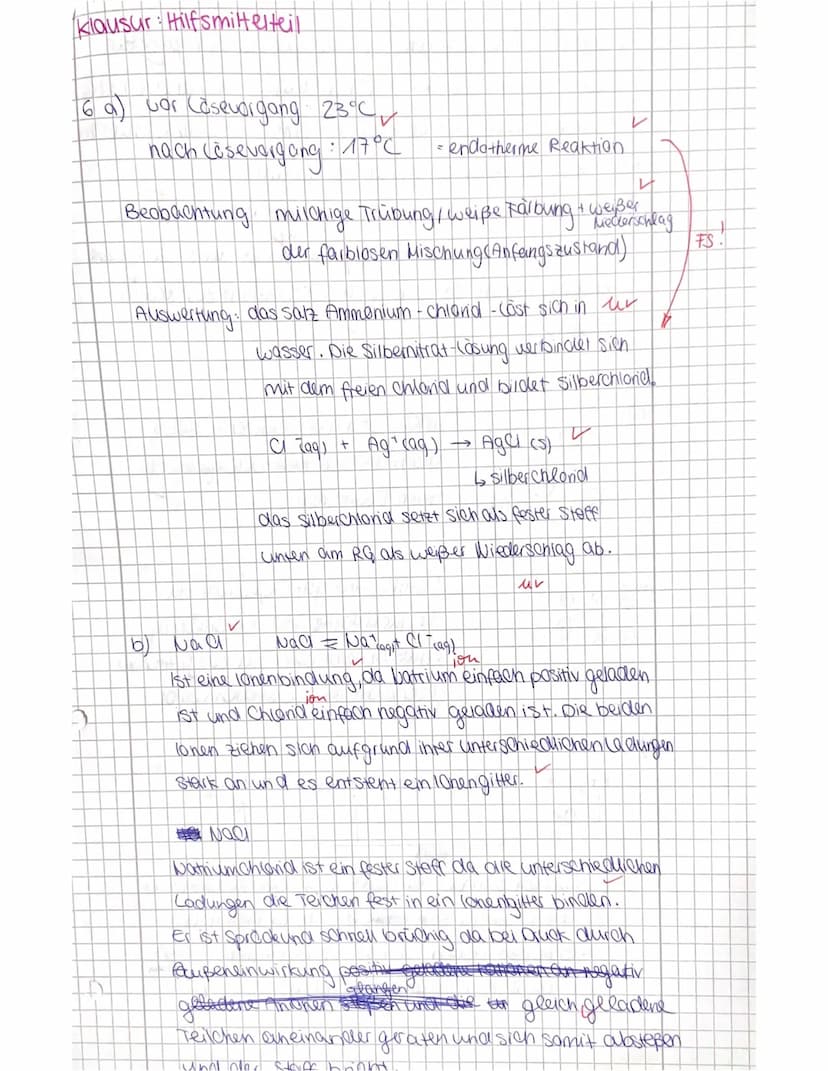 Klausur: Hilfsmittelteil
6 a) vor Lösevorgang 23°C
nach Lösevorgang: 17°C = endotherme Reaktion
Beobachtung milchige Trübung/weiße Färbung + weißer
Niederschlag
der farblosen Mischung (Anfangszustand)
FS!
Auswertung: das Salz Ammonium-chlorid-löst sich in
wasser. Die Silbernitrat-Lösung verbindet sich
mit dem freien Chlorid und bildet Silberchlorid.
Cl⁻(aq) + Ag⁺(aq) → AgCl (s)
↳ Silberchlorid
das Silberchlorid setzt sich als fester Stoff
unten am RG als weißer Niederschlag ab.
b) NaCl NaCl = Na⁺(aq) + Cl⁻(aq)
ion
Ist eine Ionenbindung, da Natrium einfach positiv geladen
ion
ist und Chlorid einfach negativ geladen ist. Die beiden
Ionen ziehen sich aufgrund ihrer unterschiedlichen Ladungen
stark an und es entsteht ein Ionengitter.
NaCl
Natriumchlorid ist ein fester Stoff da die unterschiedlichen
Ladungen die Teilchen fest in ein Ionengitter binden.
Er ist spröde und schnell brüchig, da bei Druck durch
Außeneinwirkung positiv geladene Kationen an negativ
gelangen
geladene Anionen gleich geladene
Teilchen aneinander geraten und sich somit abstoßen
und der Stoff bricht.